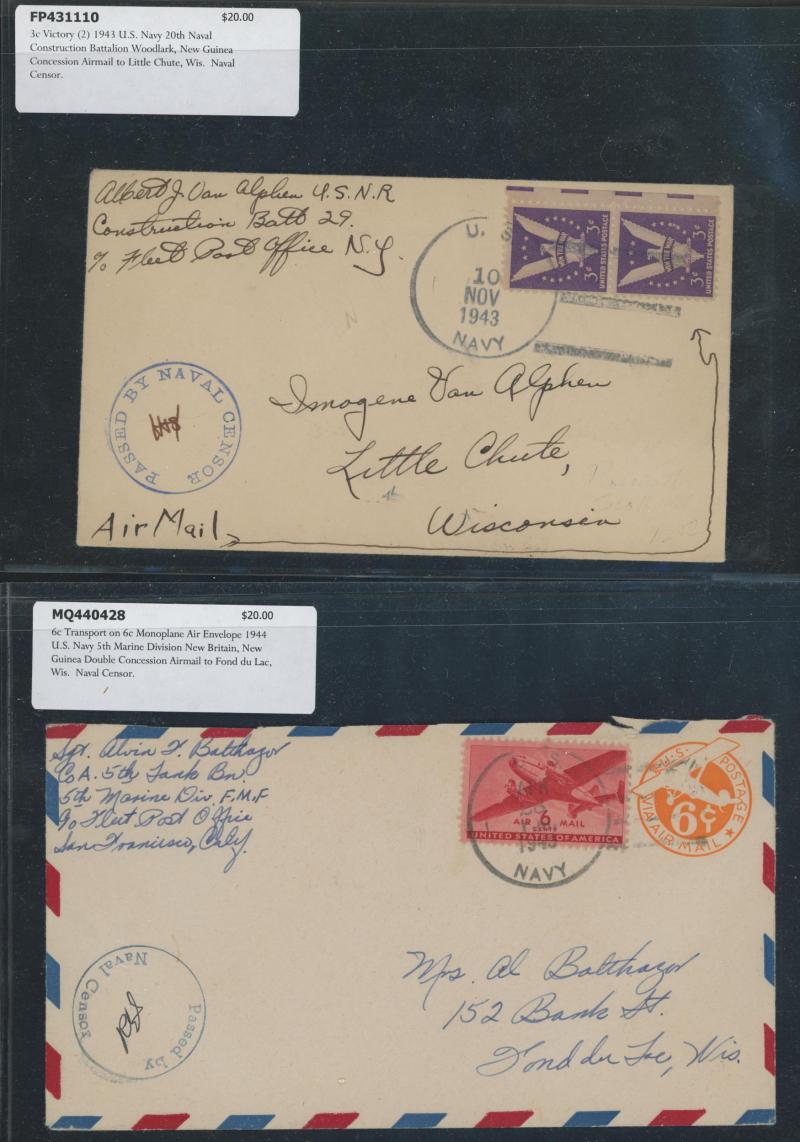 FP431110 $20.00
3c Victory (2) 1943 U.S. Navy 20th Naval
Construction Battalion Woodlark, New Guinea
Concession Airmail to Little Chute, Wis. Naval
Censor.
Albert J. Van Alphen U.S.N.R
Construction Batt 29.
% Fleet Post Office N.Y.
U. S.
10
NOV
1943
NAVY
WIN THE WAR
3¢
UNITED STATES POSTAGE
WIN THE WAR
3¢
UNITED STATES POSTAGE
PASSED BY NAVAL CENSOR
Imogene Van Alphen
Little Chute,
Wisconsin
Air Mail
MQ440428 $20.00
6c Transport on 6c Monoplane Air Envelope 1944
U.S. Navy 5th Marine Division New Britain, New
Guinea Double Concession Airmail to Fond du Lac,
Wis. Naval Censor.
Sgt. Alvin F. Balthazor
Co A. 5th Tank Bn.
5th Marine Div. F.M.F
% Fleet Post Office
San Francisco, Calif.
AIR 6 MAIL
CENTS
UNITED STATES OF AMERICA
NAVY
U.S. POSTAGE
6¢
VIA AIR MAIL
Passed by
Naval Censor
Mrs. Al Balthazor
152 Bank St.
Fond du Lac, Wis.